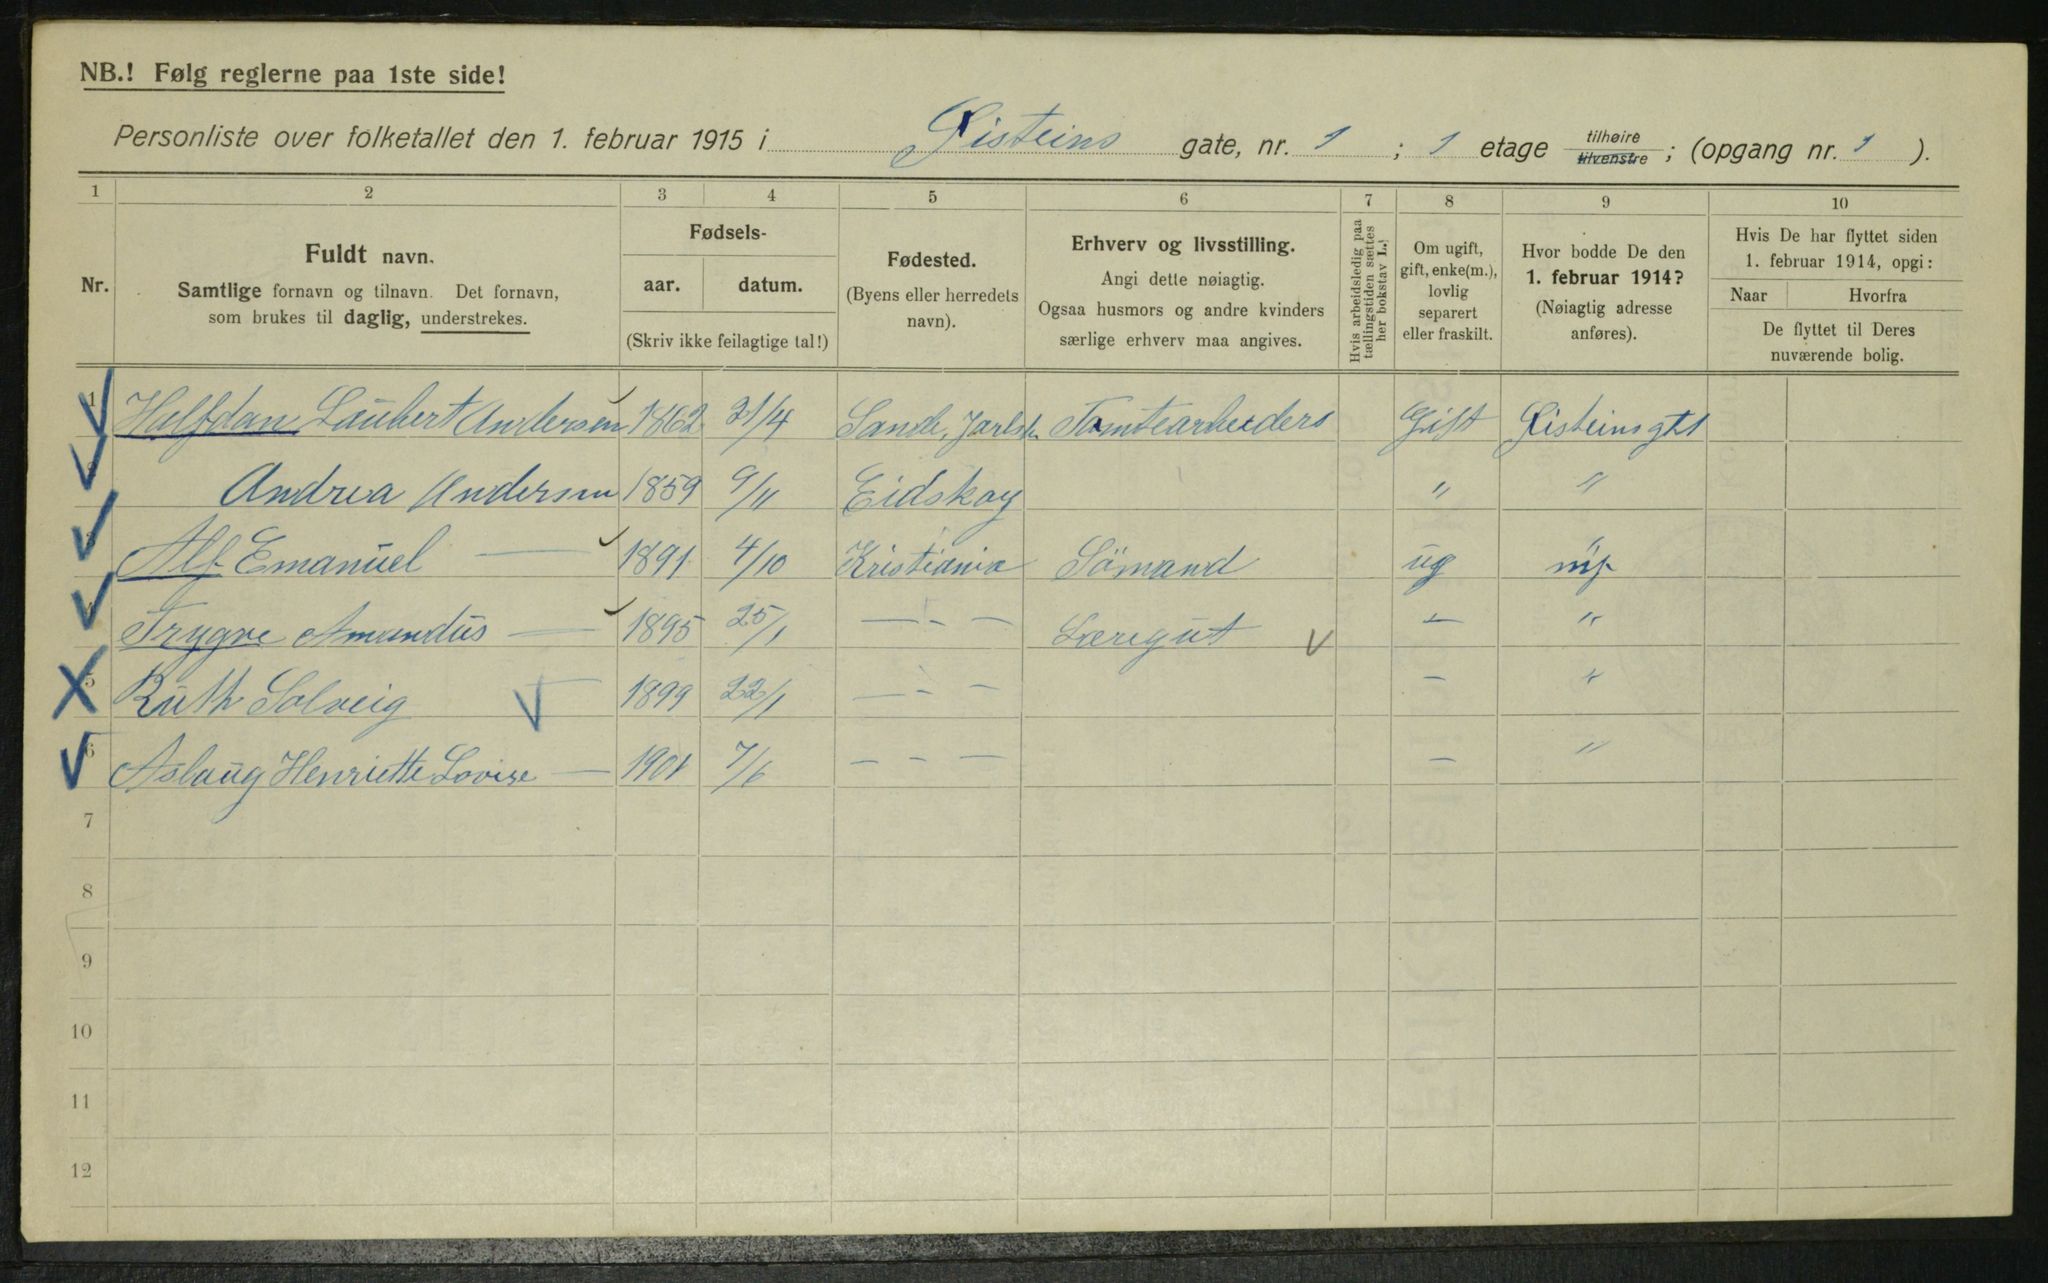 NB.! Følg reglerne paa 1ste side!
Personliste over folketallet den 1. februar 1915 i Øisteins gate, nr. 1 ; 1 etage tilhøire tilvenstre ; (opgang nr. 1 ).
1 2 3 4 5 6 7 8 9 10
Nr.
Fuldt navn.
Samtlige fornavn og tilnavn. Det fornavn,
som brukes til daglig, understrekes.
Fødsels-
aar. datum.
(Skriv ikke feilagtige tal!)
Fødested.
(Byens eller herredets
navn).
Erhverv og livsstilling.
Angi dette nøiagtig.
Ogsaa husmors og andre kvinders
særlige erhverv maa angives.
Hvis arbeidsledig paa
tællingstiden sættes
her bokstav L.!
Om ugift,
gift, enke(m.),
lovlig
separert
eller fraskilt.
Hvor bodde De den
1. februar 1914?
(Nøiagtig adresse
anføres).
Hvis De har flyttet siden
1. februar 1914, opgi:
Naar Hvorfra
De flyttet til Deres
nuværende bolig.
1 Halfdan Laubert Andersen 1862 21/4 Sande, Jarlsb. Tomtearbeiders Gift Øisteinsgt 1
2 Andrea Andersen 1859 9/11 Eidskog " "
3 Alf Emanuel — 1891 4/10 Kristiania Sömand ug "
4 Trygve Amandus — 1895 25/1 — - — Læregut — "
5 Ruth Solveig — 1899 22/1 — - — — "
6 Aslaug Henriette Lovise — 1901 7/6 — - — — "
7
8
9
10
11
12